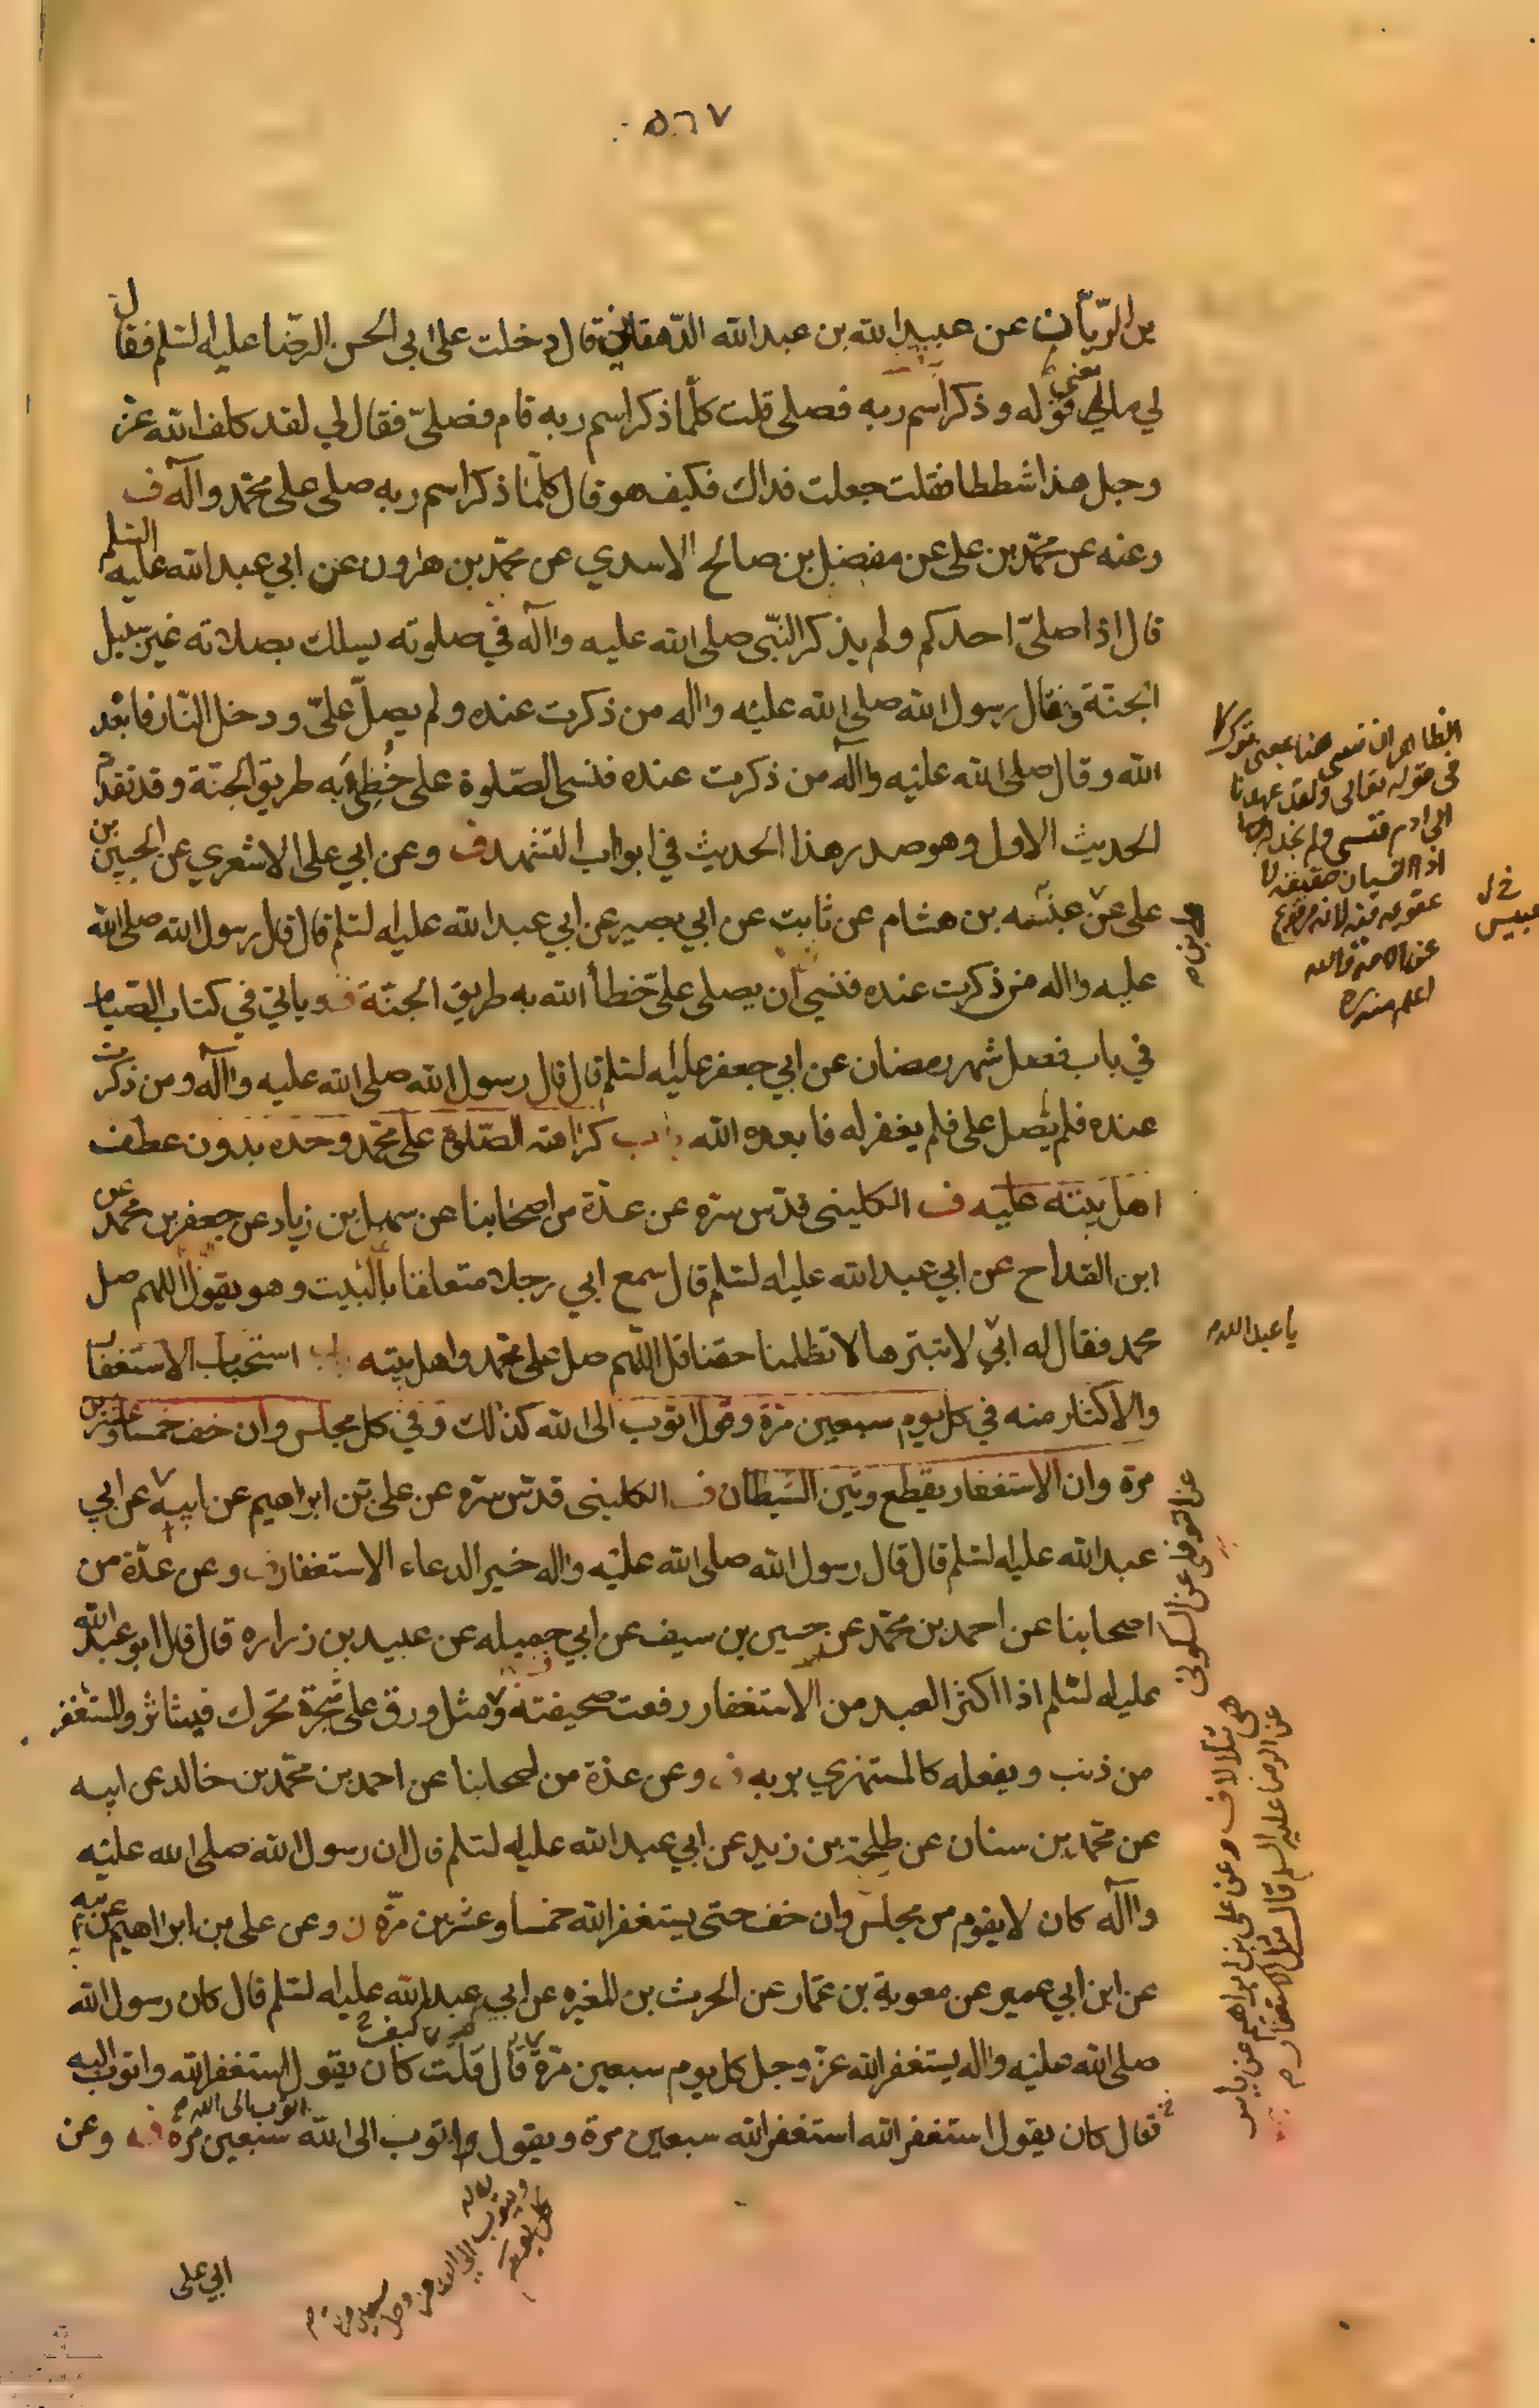 ٥٦٧
بن الريّان عن عبيد الله بن عبد الله الدهقان قال دخلت على ابي الحسن الرّضا عليه السلم فقال
لي ما معنى قوله وذكر اسم ربه فصلى قلت كلّما ذكر اسم ربه قام فصلىّ فقال لي لقد كلف الله عزّ
وجل هذا شططا فقلت جعلت فداك فكيف هو قال كلّما ذكر اسم ربه صلى على محمّد وآله ف
وعنه عن محمّد بن على عن مفضل بن صالح الاسدي عن محمّد بن هارون عن ابي عبد الله عليه السلم
قال اذا صلىّ احدكم ولم يذكر النّبى صلى الله عليه وآله في صلوته يسلك بصلاته غير سبيل
الجنّة وقال رسول الله صلى الله عليه واله من ذكرت عنده ولم يصلّ علىّ ودخل النّار فابعده
الله وقال صلى الله عليه وآله من ذكرت عنده فنسى الصّلوة على خُطِئَ به طريق الجنّة وقد تقدّم
الحديث الاول وهو صدر هذا الحديث في ابواب التشهد ف وعن ابي على الاشعري عن الحسين بن
على عن عنبسه بن هشام عن ثابت عن ابي بصير عن ابي عبد الله عليه السلم قال قال رسول الله صلى الله
عليه واله من ذكرت عنده فنسي ان يصلى علىّ خطأ الله به طريق الجنّة ف وياتي في كتاب الصّيام
في باب فضل شهر رمضان عن ابي جعفر عليه السلم قال قال رسول الله صلى الله عليه وآله ومن ذكرت
عنده فلم يصل على فلم يغفر له فابعده الله باب كراهة الصّلوة على محمّد وحده بدون عطف
اهل بيته عليه ف الكليني قدّس سرّه عن عدّة من اصحابنا عن سهل بن زياد عن جعفر بن محمّد عن
ابن القداح عن ابي عبد الله عليه السلم قال سمع ابي رجلا متعلقا بالبيت وهو يقول اللهم صل
محمد فقال له ابي لا تبترها لا تظلمنا حقنا قل اللهم صل على محمد واهل بيته باب استحباب الاستغفار
والاكثار منه في كل يوم سبعين مرّة وقول اتوب الى الله كذلك وفي كل مجلس وان خف خمسا وعشرين
مرة وان الاستغفار يقطع وتين الشيطان ف الكليني قدّس سرّه عن على بن ابراهيم عن ابيه عن ابي
عبد الله عليه السلم قال قال رسول الله صلى الله عليه واله خير الدعاء الاستغفار ف وعن عدّة من
اصحابنا عن احمد بن محمّد عن حسين بن سيف عن ابي جميله عن عبيد بن زراره قال قال ابو عبد الله
عليه السلم اذا اكثر العبد من الاستغفار رفعت صحيفته ومثل ورق على شجرة تحرك فيتناثر والمستغفر
من ذنب ويفعله كالمستهزي بربه ف وعن عدّة من اصحابنا عن احمد بن محمّد بن خالد عن ابيه
عن محمّد بن سنان عن طلحة بن زيد عن ابي عبد الله عليه السلم قال ان رسول الله صلى الله عليه
وآله كان لا يقوم من مجلس وان خف حتى يستغفر الله خمسا وعشرين مرّة ف وعن على بن ابراهيم عن ابيه
عن ابن ابي عمير عن معوية بن عمّار عن الحرث بن المغيره عن ابي عبد الله عليه السلم قال كان رسول الله
صلى الله عليه واله يستغفر الله عزّ وجل كل يوم سبعين مرّة قال قلت كيف كان يقول استغفر الله واتوب اليه
فقال كان يقول استغفر الله استغفر الله سبعين مرة ويقول واتوب الى الله اتوب الى الله سبعين مرة ف وعن
ابي على
الظاهر ان نسى هنا بمعنى ترك كما
في قوله تعالى ولقد عهدنا
الى ادم فنسى ولم نجد له عزما
اذ النسيان حقيقة لا
عقوبة
عن الامة والله
اعلم منه
خ ل
عبيس
يا عبد الله م
عن النوفلي عن السكوني
هي تتلالا ف وعن على بن ابراهيم عن ياسر
عن الرضا عليه السلم قال مثل الاستغفار م